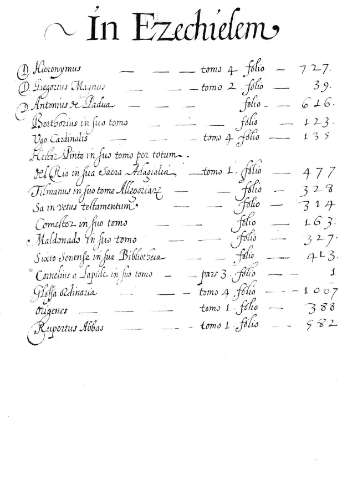 In Ezechielem
D. Hieronymus — — — tomo 4 folio — 727.
D. Gregorius Magnus — — tomo 2 folio — 39.
D. Antonius de Padua — — folio — 646.
in suo tomo — — folio — 123.
Ugo Cardinalis — — — tomo 4 folio — 138
Hector Pinto in suo tomo per totum.
del Rio in sua Sacra Adagialia — tomo 1. folio — 477
Tilmanus in suo tomo Allegoriarũ — folio — 328
Sa in vetus testamentum — folio — 314
Comestor in suo tomo — — folio — 163.
Maldonado in suo tomo — — folio — 327.
Sixto Senense in sua Bibliotheca — folio — 413.
Cornelius a Lapide in suo tomo — pars 3. folio — 1
Glossa ordinaria — — tomo 4 folio — 1007
Origenes — — — tomo 1 folio — 388
Rupertus Abbas — — tomo 1 folio — 982